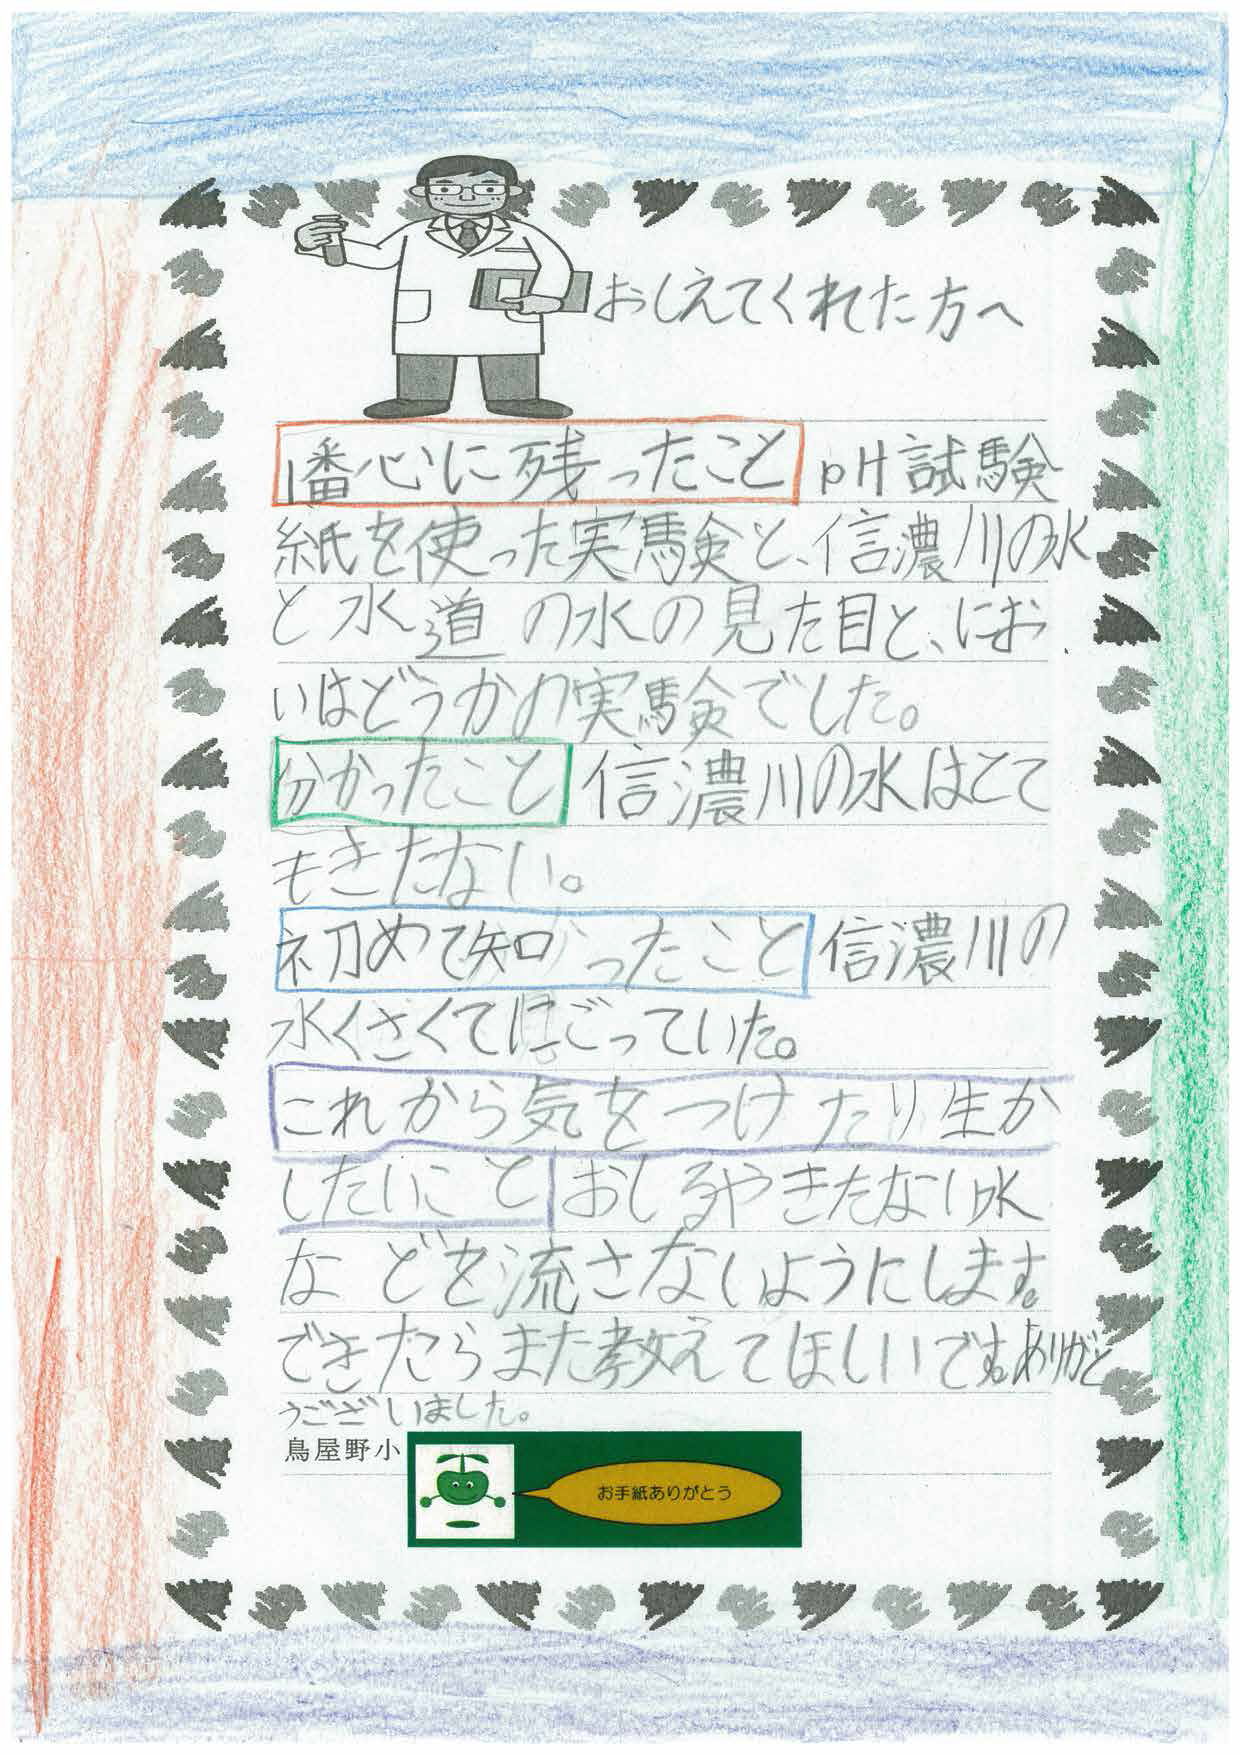 おしえてくれた方へ
1番心に残ったこと pH試験
紙を使った実験と、信濃川の水
と水道の水の見た目と、にお
いはどうかの実験でした。
分かったこと 信濃川の水はとて
もきたない。
初めて知ったこと 信濃川の
水くさくてにごっていた。
これから気をつけたり生か
したいこと おしるやきたない水
などを流さないようにします。
できたらまた教えてほしいです。ありがと
うございました。
鳥屋野小
お手紙ありがとう